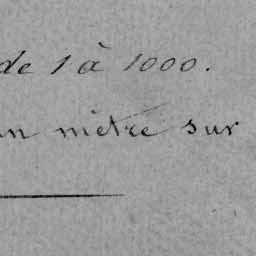 de 1 à 1000.
un mètre sur